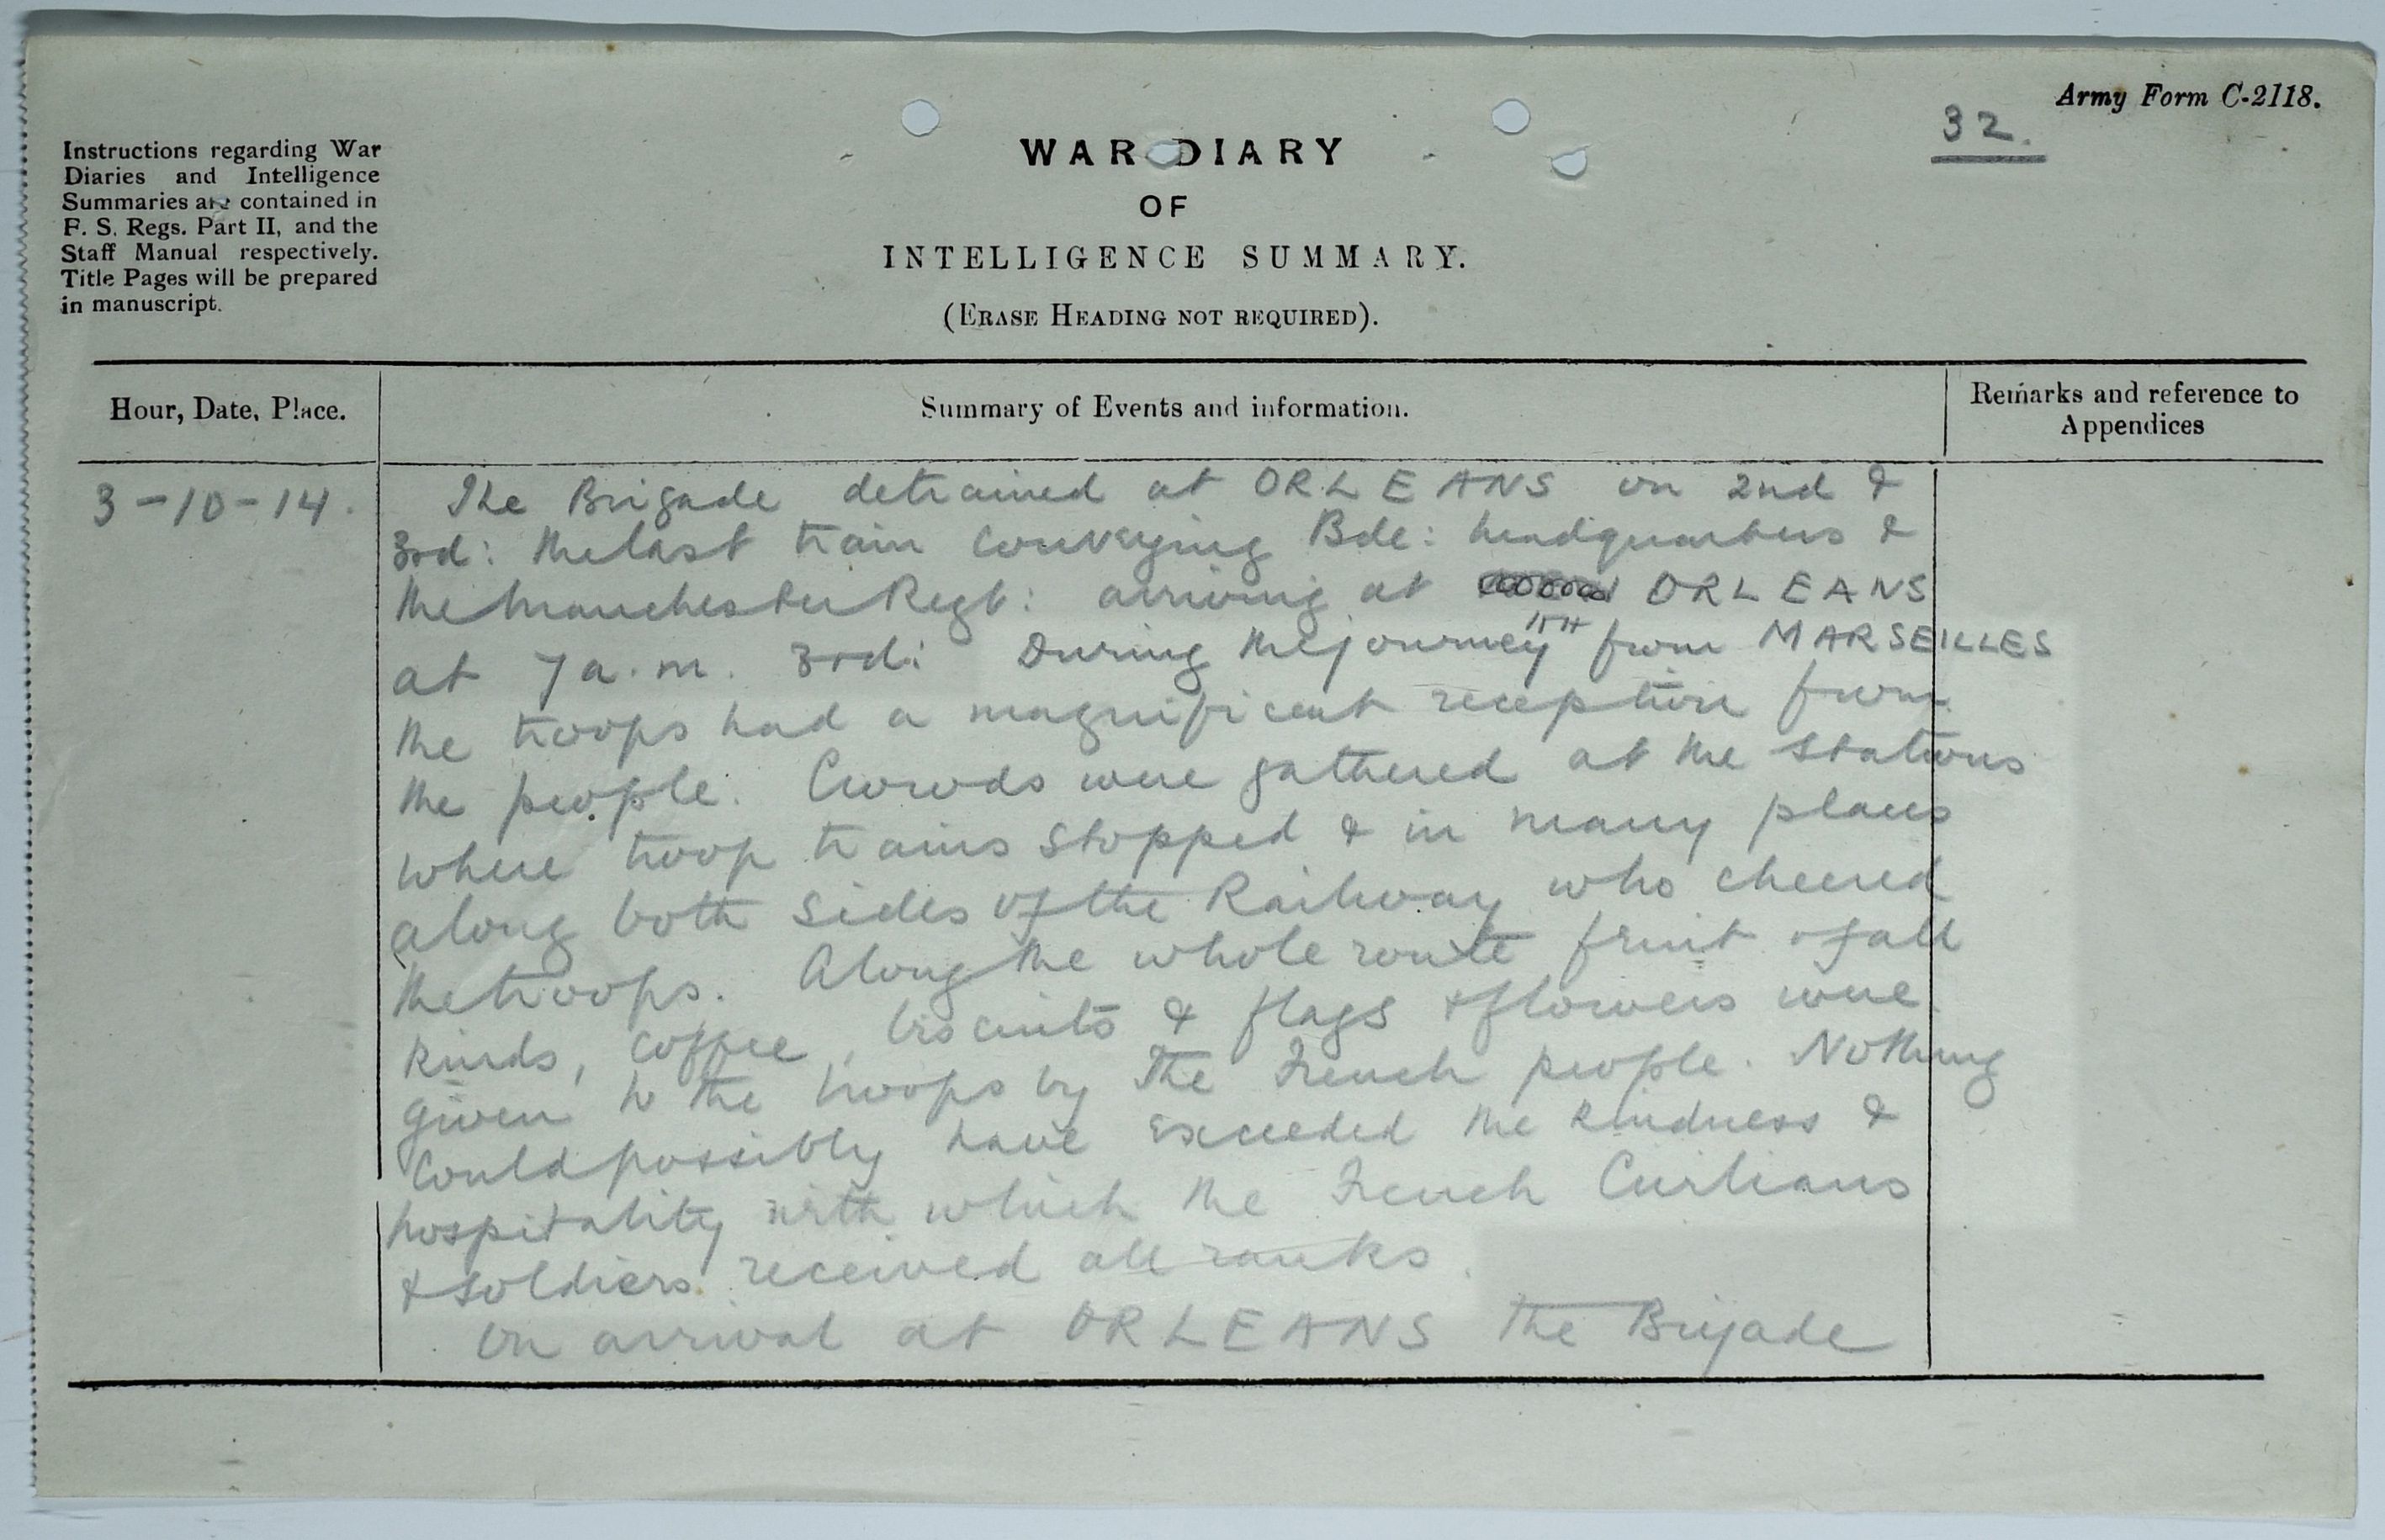 Army Form C-2118.
32.
Instructions regarding War
Diaries and Intelligence
Summaries are contained in
F. S. Regs. Part II, and the
Staff Manual respectively.
Title Pages will be prepared
in manuscript.
WAR DIARY
OF
INTELLIGENCE SUMMARY.
(ERASE HEADING NOT REQUIRED).
Hour, Date, Place.
Summary of Events and information.
Remarks and reference to
Appendices
3-10-14.
The Brigade detrained at ORLEANS on 2nd &
3rd: the last train conveying Bde: headquarters &
the Manchester Regt: arriving at ORLEANS
at 7 a.m. 3rd: During the journey from MARSEILLES
the troops had a magnificent reception from
the people. Crowds were gathered at the stations
where troop trains stopped & in many places
along both sides of the Railway who cheered
the troops. Along the whole route fruit of all
kinds, coffee, biscuits & flags & flowers were
given to the troops by the French people. Nothing
could possibly have exceeded the kindness &
hospitality with which the French Civilians
& soldiers received all ranks.
On arrival at ORLEANS the Brigade